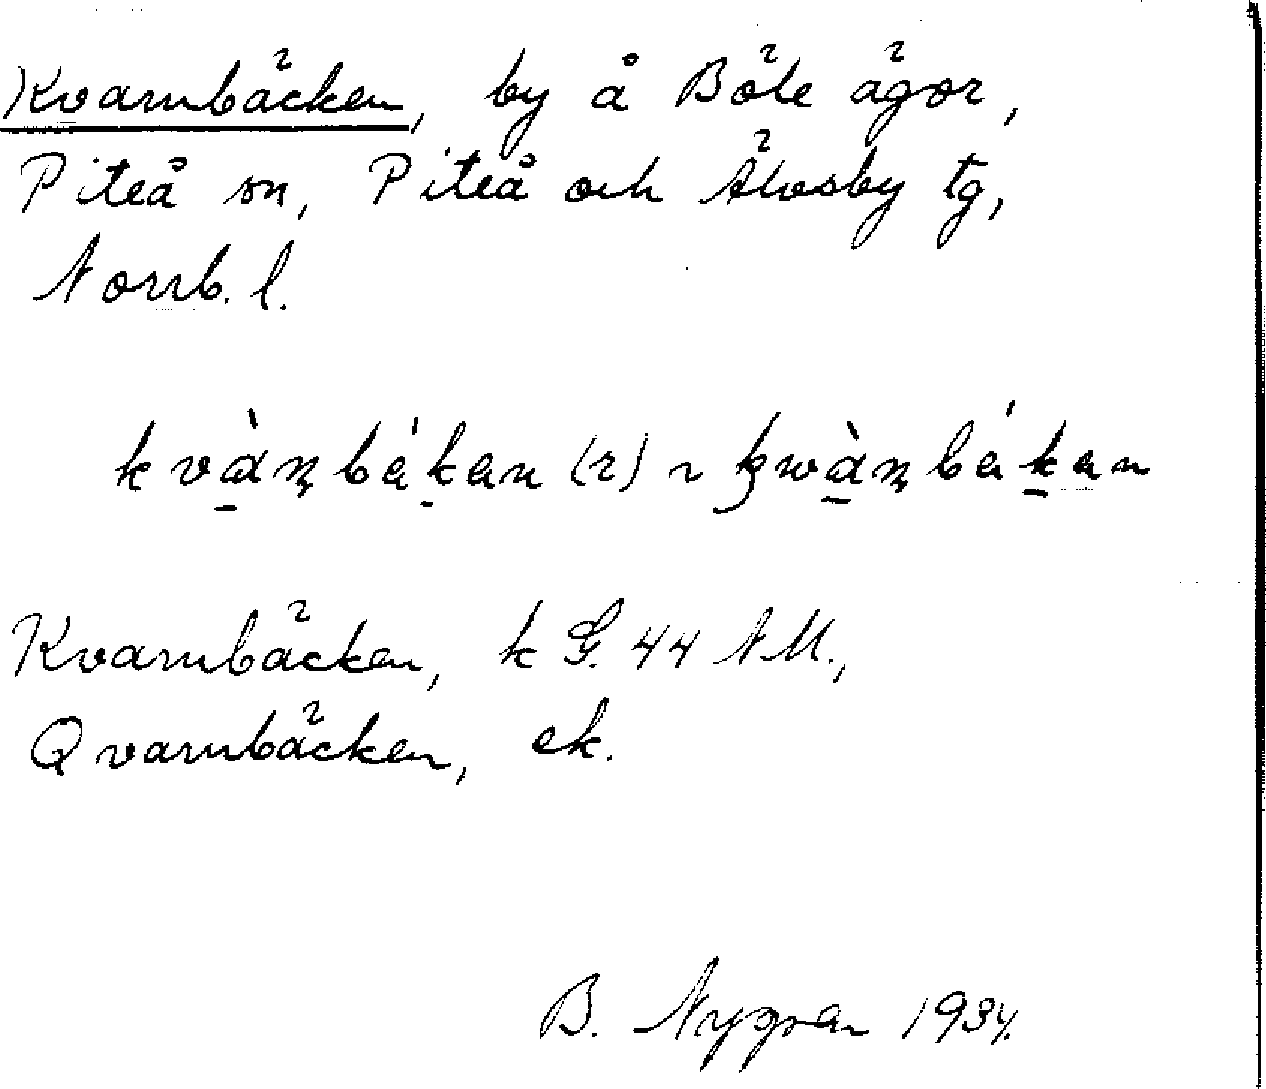 Kvarnbäcken, by å Böle ägor,
Piteå sn, Piteå och Älvsby tg,
Norrb. l.
kvàṇbákan (r) ~ kwàṇbákan
Kvarnbäcken, k G. 44 NM.,
Qvarnbäcken, ek.
B. Nygren 1934.